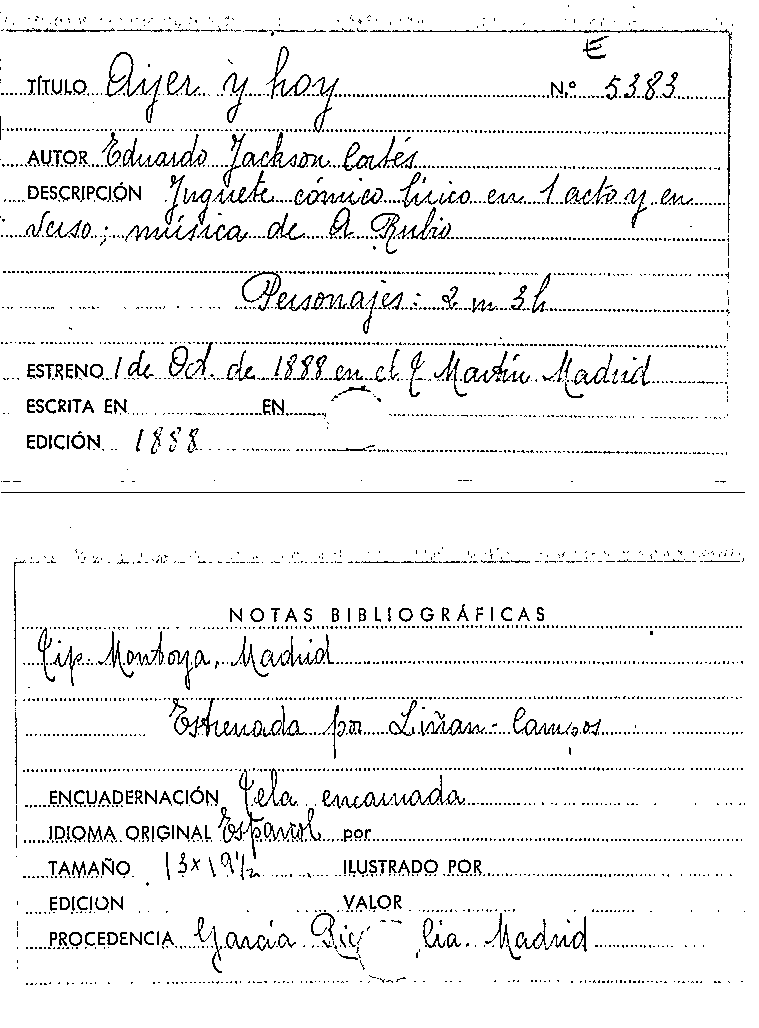 E
TÍTULO Ayer y hoy N.º 5383
AUTOR Eduardo Jackson Cortés
DESCRIPCIÓN Juguete cómico lírico en 1 acto y en
verso; música de A Rubio
Personajes: 2 m 3 h
ESTRENO 1 de Oct. de 1888 en el T Martín Madrid
ESCRITA EN EN
EDICIÓN 1888
NOTAS BIBLIOGRÁFICAS
Tip. Montoya, Madrid
Estrenada por Liñan-Campos
ENCUADERNACIÓN Tela encarnada
IDIOMA ORIGINAL Español por
TAMAÑO 13x19 1/2 ILUSTRADO POR
EDICION VALOR
PROCEDENCIA García Cia. Madrid